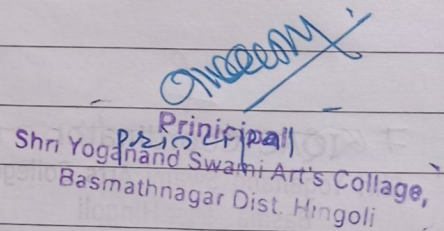 Prinicipal
Shri Yoganand Swami Art's Collage,
Basmathnagar Dist. Hingoli